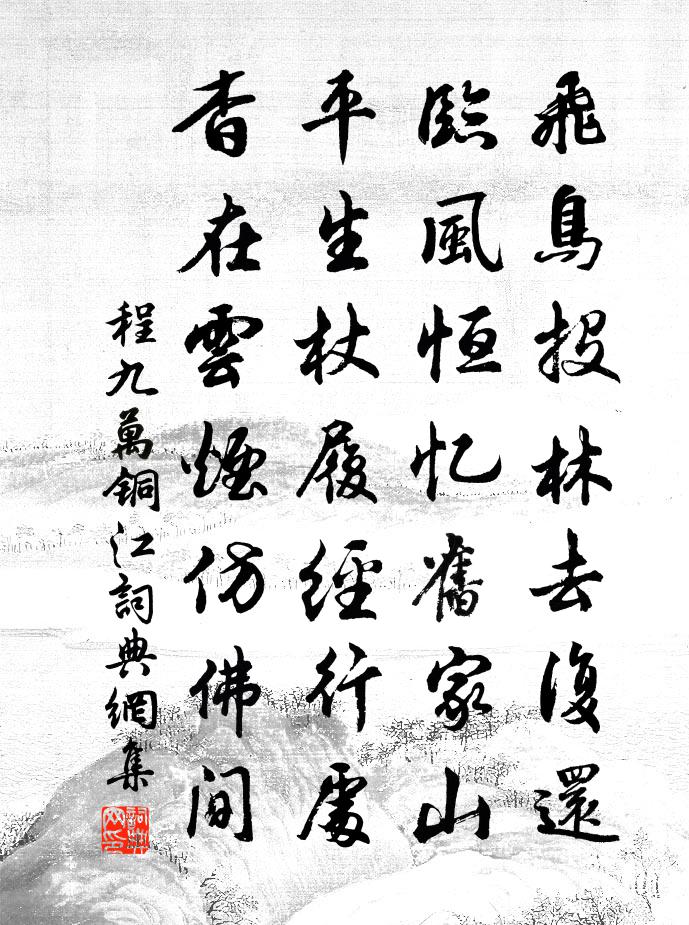 飛鳥投林去復還
臨風恒忆舊家山
平生杖履經行處
杳在雲煙仿佛間
程九萬銅江詞典網集
詞典网印